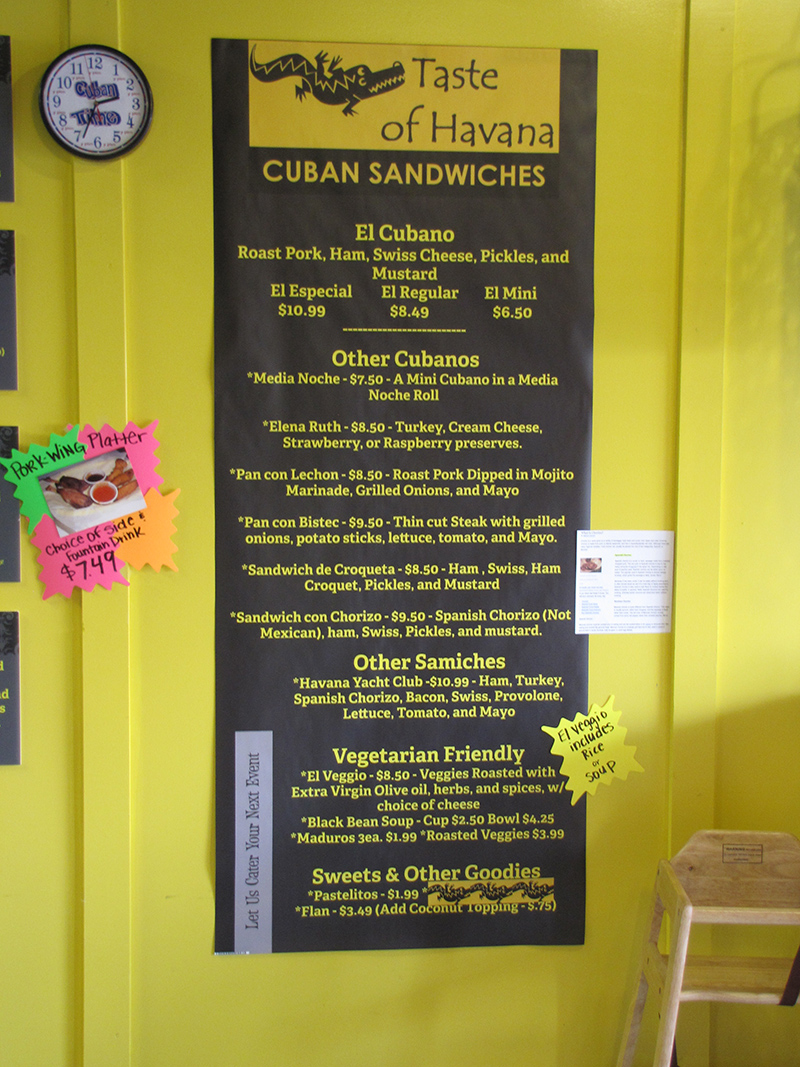 12
11 1
10 2
9 3
8 4
7 5
6
Cuban
Time
Taste
of Havana
CUBAN SANDWICHES
El Cubano
Roast Pork, Ham, Swiss Cheese, Pickles, and
Mustard
El Especial El Regular El Mini
$10.99 $8.49 $6.50
-------------------------
Other Cubanos
*Media Noche - $7.50 - A Mini Cubano in a Media
Noche Roll
*Elena Ruth - $8.50 - Turkey, Cream Cheese,
Strawberry, or Raspberry preserves.
*Pan con Lechon - $8.50 - Roast Pork Dipped in Mojito
Marinade, Grilled Onions, and Mayo
*Pan con Bistec - $9.50 - Thin cut Steak with grilled
onions, potato sticks, lettuce, tomato, and Mayo.
*Sandwich de Croqueta - $8.50 - Ham , Swiss, Ham
Croquet, Pickles, and Mustard
*Sandwich con Chorizo - $9.50 - Spanish Chorizo (Not
Mexican), ham, Swiss, Pickles, and mustard.
Other Samiches
*Havana Yacht Club -$10.99 - Ham, Turkey,
Spanish Chorizo, Bacon, Swiss, Provolone,
Lettuce, Tomato, and Mayo
Vegetarian Friendly
*El Veggio - $8.50 - Veggies Roasted with
Extra Virgin Olive oil, herbs, and spices, w/
choice of cheese
*Black Bean Soup - Cup $2.50 Bowl $4.25
*Maduros 3ea. $1.99 *Roasted Veggies $3.99
Sweets & Other Goodies
*Pastelitos - $1.99 *
*Flan - $3.49 (Add Coconut Topping - $.75)
Let Us Cater Your Next Event
PORK-WING Platter
Choice of side &
Fountain Drink
$7.49
El Veggio
includes
Rice
or
Soup